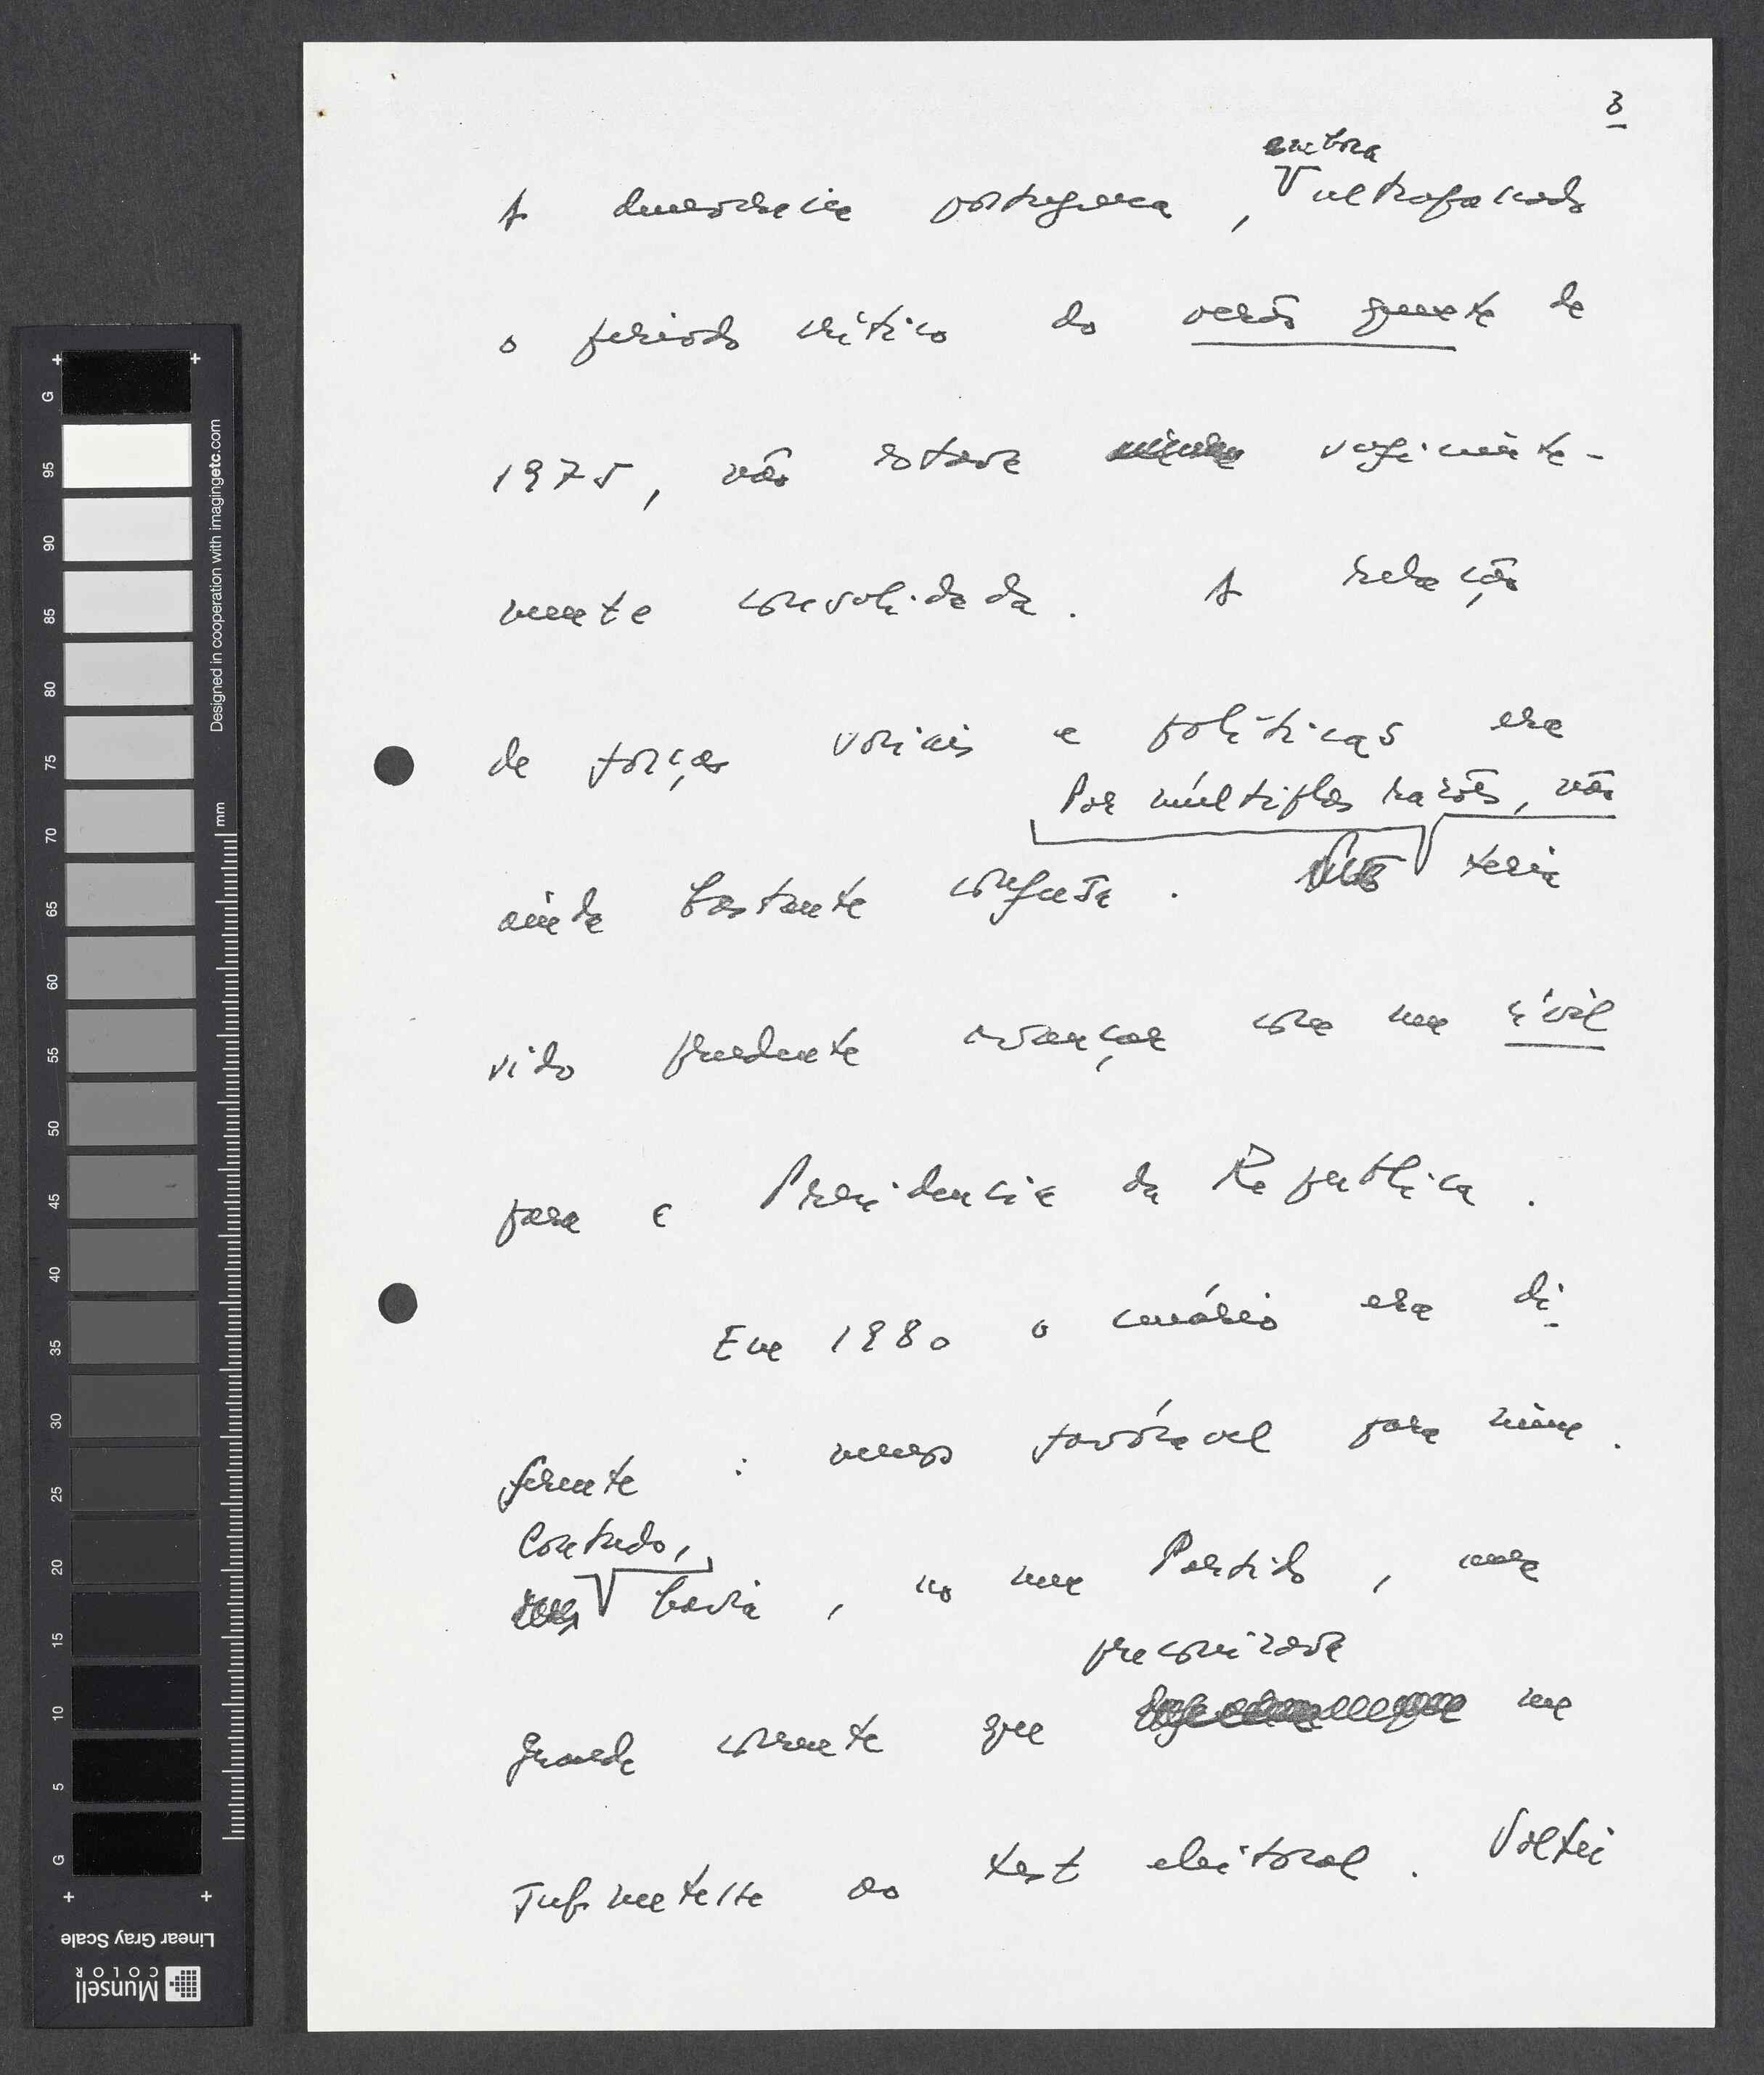 3
embora
A democracia portuguesa, ultrapassado
o período crítico do verão quente de
1975, não estava suficiente-
mente consolidada. A relação
de forças sociais e políticas era
Por múltiplas razões, não
ainda bastante confusa. teria
sido prudente avançar com um civil
para a Presidencia da Republica.
Em 1980 o cenário era di
ferente: menos favóravel para mim.
Contudo,
havia, no meu Partido, uma
preconizava
grande corrente que me
submetesse ao test eleitoral. Voltei
G
95
90
85
80
75
70
65
60
55
50
45
40
35
30
25
20
15
10
5
G
mm
Designed in cooperation with imagingetc.com
Linear Gray Scale
Munsell
COLOR